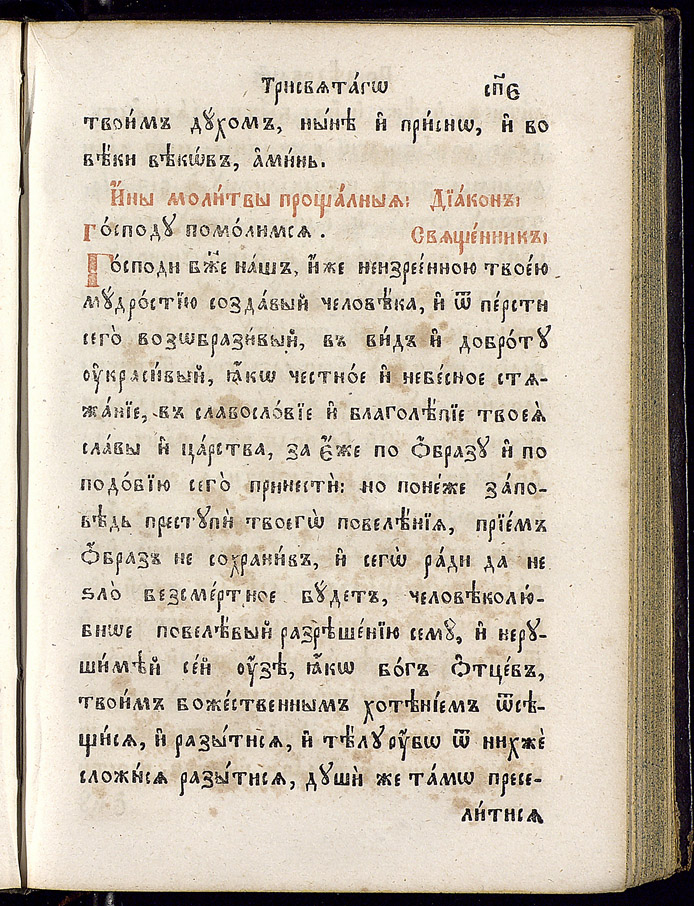 Трисвѧта́гѡ сп҃є
твои́мъ дꙋ́хомъ, ны́нѣ и҆ при́снѡ, и҆ во
вѣ́ки вѣкѡ́въ, а҆ми́нь.
И҆́ны моли́твы проща́лныѧ: Дїа́конъ:
Го́споду помо́лимсѧ. Свѧще́нникъ:
Го́споди бж҃е на́шъ, и҆́же неизрее́нною твоє́ю
мꙋ́дростїю созда́вый человѣ́ка, и҆ ѿ пе́рсти
сего̀ возѡбрази́вый, въ ви́дъ и҆ добро́тꙋ
оу҆краси́вый, ꙗ҆́кѡ честно́е и҆ небе́сное стѧ-
жа́нїе, въ славосло́вїе и҆ благолѣ́пїе твоеѧ̀
сла́вы и҆ ца́рства, за є҆́же по ѻ҆́бразꙋ и҆ по
подо́бїю сего̀ принестѝ: но поне́же за́по-
вѣдь престꙋпѝ твоегѡ̀ повелѣ́нїѧ, прїе́мъ
ѻ҆́бразъ не сохрани́въ, и҆ сегѡ̀ ра́ди да не
ѕло̀ безсме́ртное бꙋ́детъ, человѣколю́-
бнѡе повелѣ́вый разрѣше́нїю семꙋ̀, и҆ нерꙋ-
ши́мѣй се́й оу҆́зѣ, ꙗ҆́кѡ бо́гъ ѻ҆тце́въ,
твои́мъ боже́ственнымъ хотѣ́нїемъ ѿсѣ-
щи́сѧ, и҆ разы́тисѧ, и҆ тѣ́лꙋ ᲂу҆́бѡ ѿ ни́хже
сложи́сѧ разы́тисѧ, дꙋшѝ же та́мѡ пресе-
ли́тисѧ